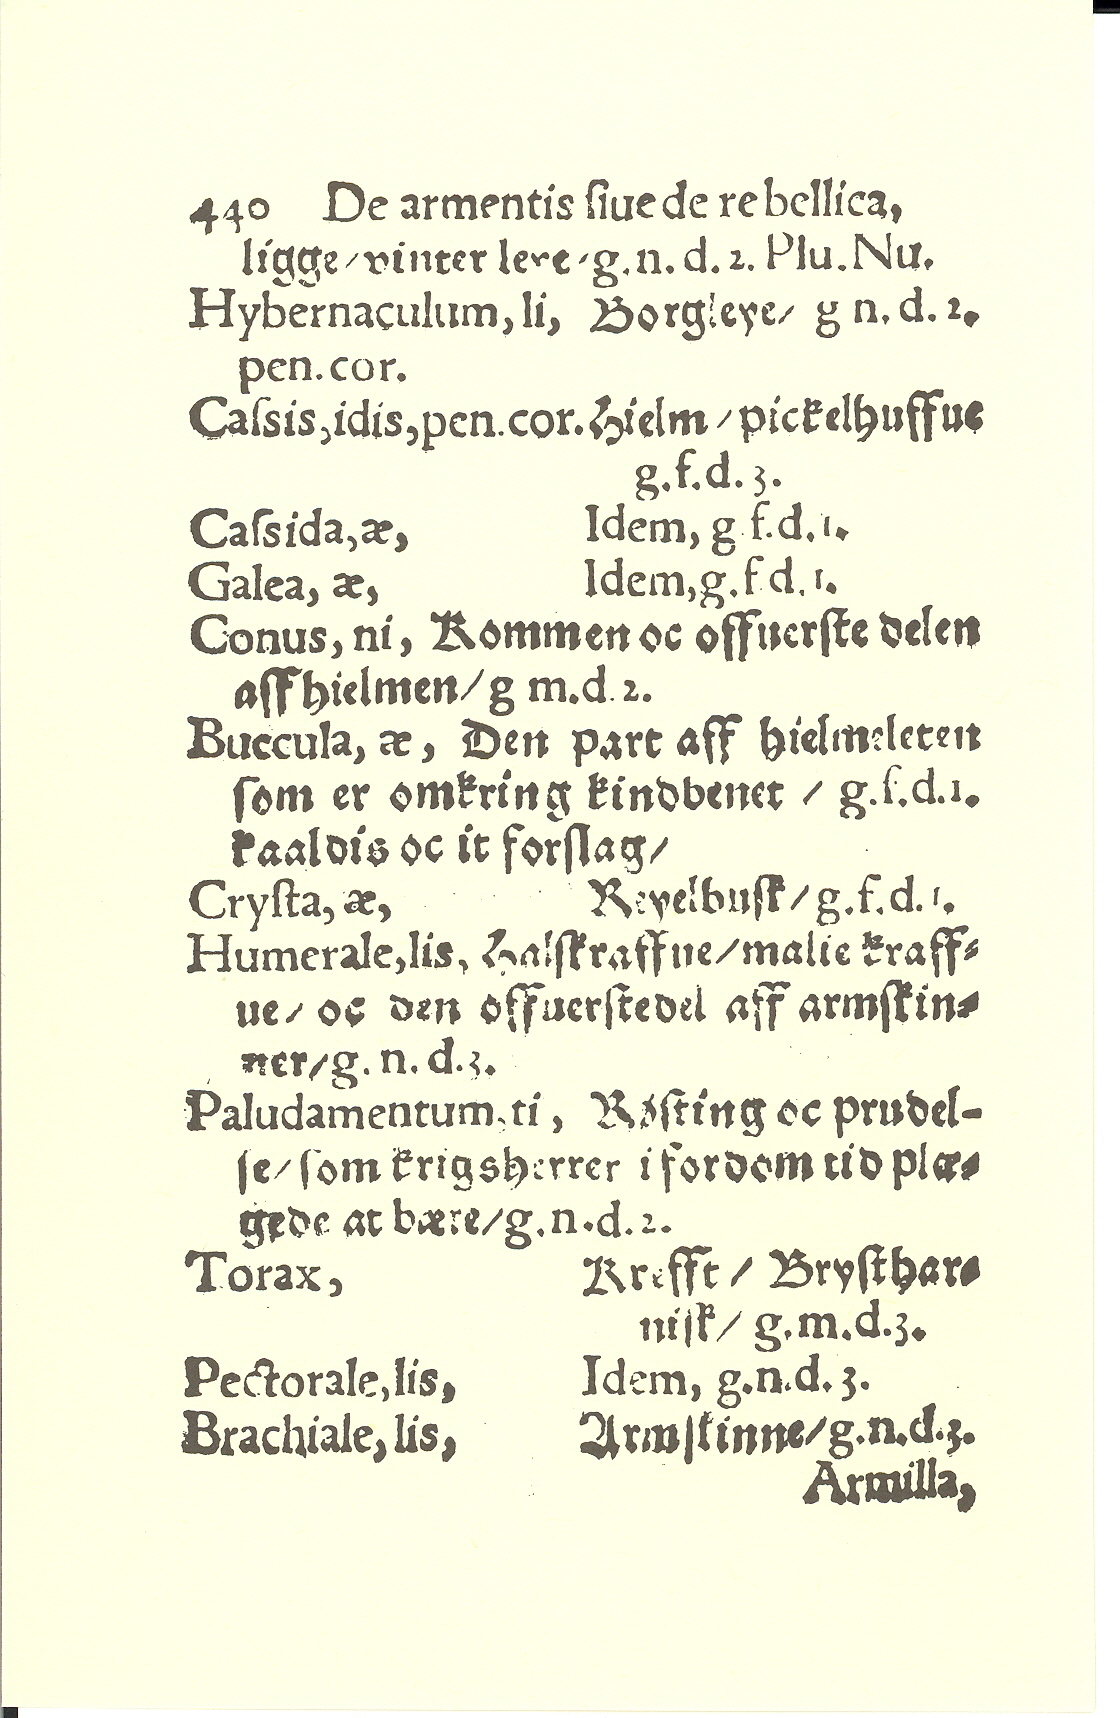 440 De armentis ſiue de re bellica,
ligge/vinter leye/g.n.d.2. Plu.Nu.
Hybernaculum, li, Borgleye/ g n.d.2.
pen.cor.
Caſsis,idis,pen.cor. Hielm/pickelhuffue
g.f.d.3.
Caſsida,æ, Idem, g f.d.1.
Galea, æ, Idem,g.f d.1.
Conus, ni, Kommen oc offuerſte delen
aff hielmen/g m.d.2.
Buccula, æ, Den part aff hielmeleten
ſom er omkring kindbenet / g.f.d.1.
kaaldis oc it forſlag/
Cryſta, æ, Reyelbuſk/g.f.d.1.
Humerale,lis, Halſkraffue/malie kraff-
ue/ oc den offuerſtedel aff armſkin-
ner/g.n.d.3.
Paludamentum,ti, Røſting oc prudel-
ſe/ſom krigsherrer i fordom tid plæ-
gede at bære/g.n.d.2.
Torax, Krefft / Bryſthar-
niſk/ g.m.d.3.
Pectorale,lis, Idem, g.n.d.3.
Brachiale, lis, Armſkinne/g.n.d.3.
Armilla,